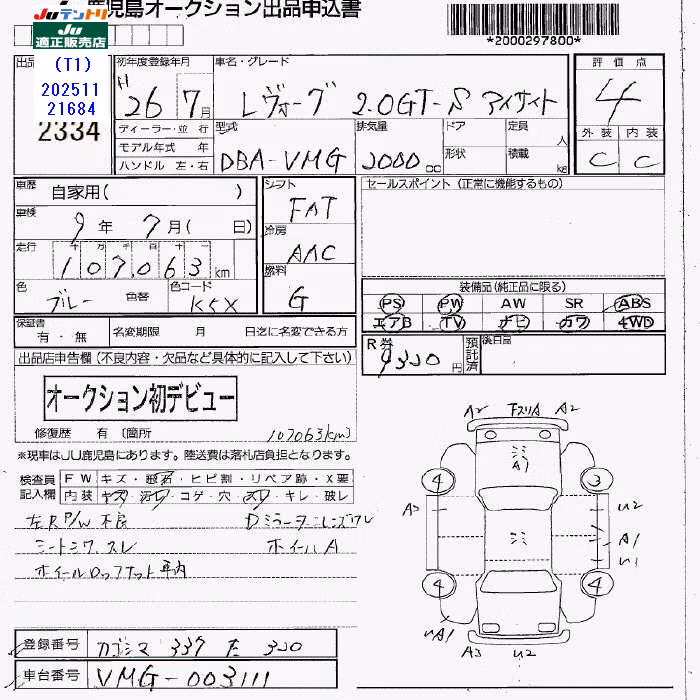 鹿児島オークション出品申込書
JUテントリ
JU適正販売店
*2000297800*
出品
(T1)
202511
21684
2334
初年度登録年月
H26 7月
車名・グレード
レヴォーグ 2.0GT-S アイサイト
評価点
4
外装 内装
C C
ディーラー・並行
モデル年式 年
ハンドル 左・右
型式
DBA-VMG
排気量
2000 cc
ドア
形状
定員 人
積載 kg
車歴 自家用( )
車検 9年 7月( 日)
走行 十 万 千 百 十
107,063 km
色 ブルー 色替
色コード K5X
シフト FAT
冷房 AAC
燃料 G
セールスポイント (正常に機能するもの)
装備品(純正品に限る)
PS PW AW SR ABS
エアB TV ナビ カワ 4WD
保証書 有・無
名変期限 月 日迄に名変できる方
R券 9330円
預託済
後日品
出品店申告欄(不良内容・欠品など具体的に記入して下さい)
オークション初デビュー
修復歴 有 〔箇所
107063km〕
※現車はJU鹿児島にあります。陸送費は落札店負担となります。
検査員記入欄
FW キズ・飛石・ヒビ割・リペア跡・X要
内装 ヤブ・汚れ・コゲ・穴・スレ・キレ・破レ
左R P/W 不良 Dミラーウィンレンズワレ
シートシワ、スレ ホイールA
ホイールロックナット車内
A2 下スリA A2
ミミ
A1
4 3
A3 U2
ミミ
A1
U1
4 4
UA1
A3 U2
登録番号 カゴシマ 337 た 330
車台番号 VMG-003111